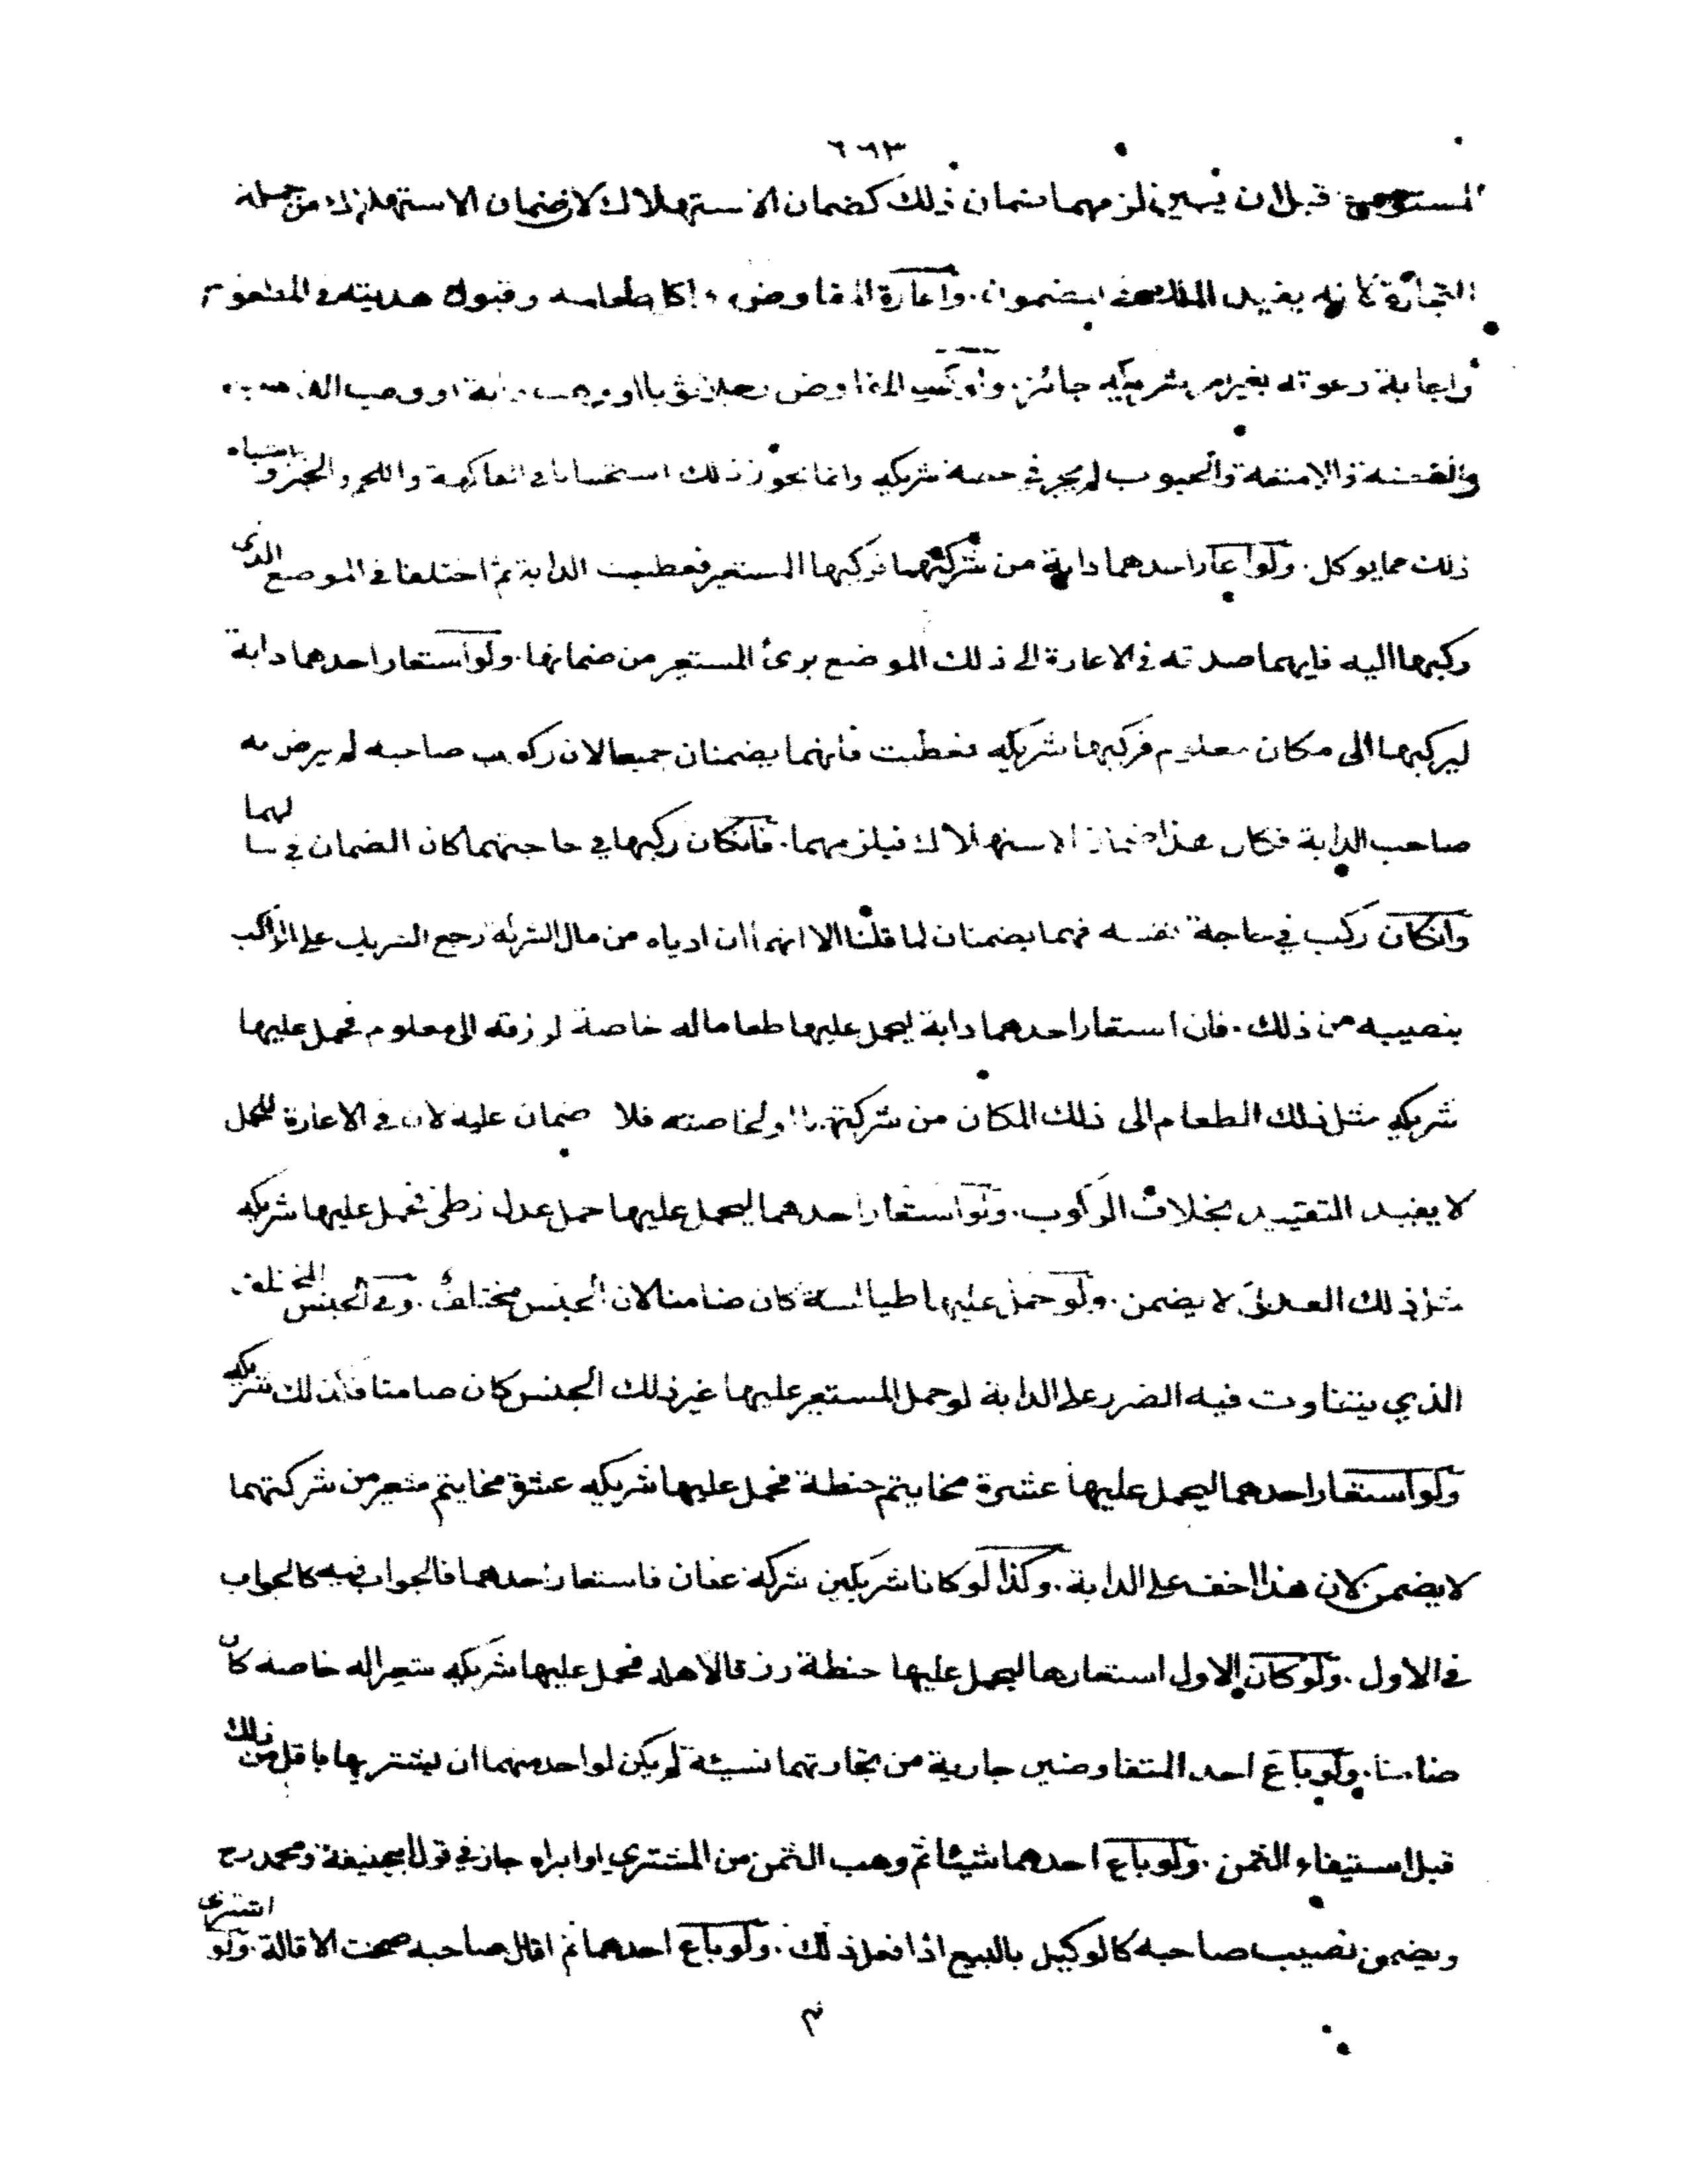 ٦٦٣
المستودع قبل ان يبين لزمهما ضمان ذلك كضمان الاستهلاك لان ضمان الاستهلاك من جملة
التجارة لانه يفيد الملك في المضمون. واعارة المفاوض واكل طعامه وقبول هديته في المطعوم
واجابة دعوته بغير امر شريكه جائز. ولو كسى المفاوض رجلا ثوبا او وهب دابة او وهب الذهب
والفضة والامتعة والحبوب لم يجز في حصة شريكه وانما يجوز ذلك استحسانا في الفاكهة واللحم والخبز واشباه
ذلك مما يوكل. ولو اعار احدهما دابة من شركتهما فركبها المستعير فعطبت الدابة ثم اختلفا في الموضع الذى
ركبها اليه فايهما صدقه في الاعارة الى ذلك الموضع برئ المستعير من ضمانها. ولو استعار احدهما دابة
ليركبها الى مكان معلوم فركبها شريكه فعطبت فانهما يضمنان جميعا لان ركوب صاحبه لم يرض به
صاحب الدابة فكان هذا ضمان الاستهلاك فيلزمهما. فانكان ركبها في حاجتهما كان الضمان في مالهما
وانكان ركب في حاجة نفسه فهما يضمنان لما قلنا الا انهما ان ادياه من مال الشركة رجع الشريك على الراكب
بنصيبه من ذلك. فان استعار احدهما دابة ليحمل عليها طعاما له خاصة لرزقه الى معلوم فحمل عليها
شريكه مثل ذلك الطعام الى ذلك المكان من شركتهما او لخاصته فلا ضمان عليه لان في الاعارة للحمل
لا يفيد التقييد بخلاف الركوب. ولو استعار احدهما ليحمل عليها حمل عدل زطى فحمل عليها شريكه
مثل ذلك العدل لا يضمن. ولو حمل عليها طيالسة كان ضامنا لان الجنس مختلف. وفى الجنس المختلف
الذي يتفاوت فيه الضرر على الدابة لو حمل المستعير عليها غير ذلك الجنس كان ضامنا فكذلك شريكه
ولو استعار احدهما ليحمل عليها عشرة مخاتيم حنطة فحمل عليها شريكه عشرة مخاتيم شعير من شركتهما
لا يضمن لان هذا اخف على الدابة. وكذا لو كانا شريكين شركة عنان فاستعار احدهما فالجواب فيه كالجواب
في الاول. ولو كان الاول استعارها ليحمل عليها حنطة رزقا لاهله فحمل عليها شريكه شعيرا له خاصة كان
ضامنا. ولو باع احد المتفاوضين جارية من تجارتهما نسيئة لم يكن لواحد منهما ان يشتريها باقل من ذلك
قبل استيفاء الثمن. ولو باع احدهما شيئا ثم وهب الثمن من المشتري او ابراه جاز في قول ابيحنيفة ومحمد رح
ويضمن نصيب صاحبه كالوكيل بالبيع اذا فعل ذلك. ولو باع احدهما ثم اقال صاحبه صحت الاقالة. ولو اشترى